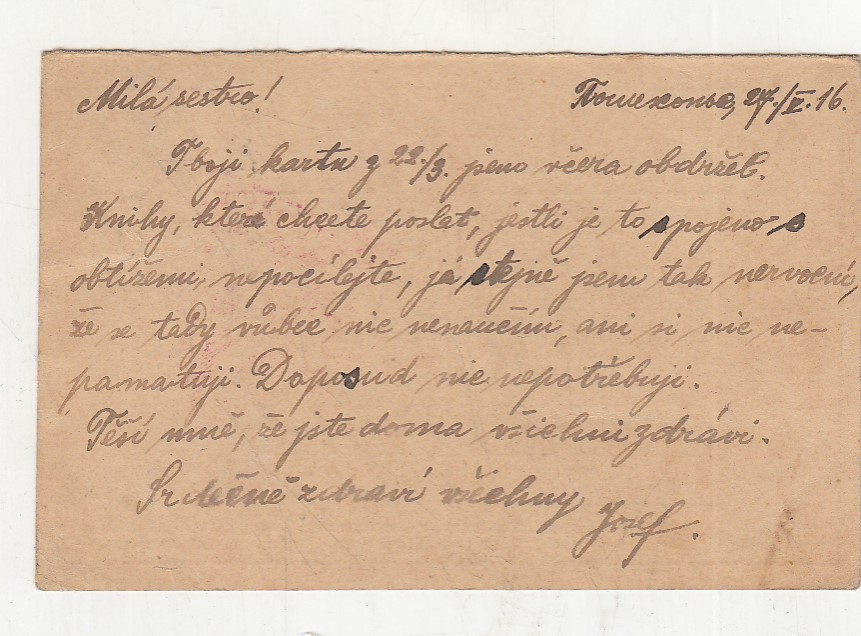 Milá sestro! Пошехонье, 27./V. 16.
Tvoji kartu z 22./3. jsem včera obdržel.
Knihy, které chcete poslat, jestli je to spojeno s
obtížemi, nepocílejte, já stejně jsem tak nervosní,
že se tady vůbec nic nenaučím, ani si nic ne-
pamatuji. Doposud nic nepotřebuji.
Těší mně, že jste doma všichni zdrávi.
Srdečně zdraví všechny
Josef.